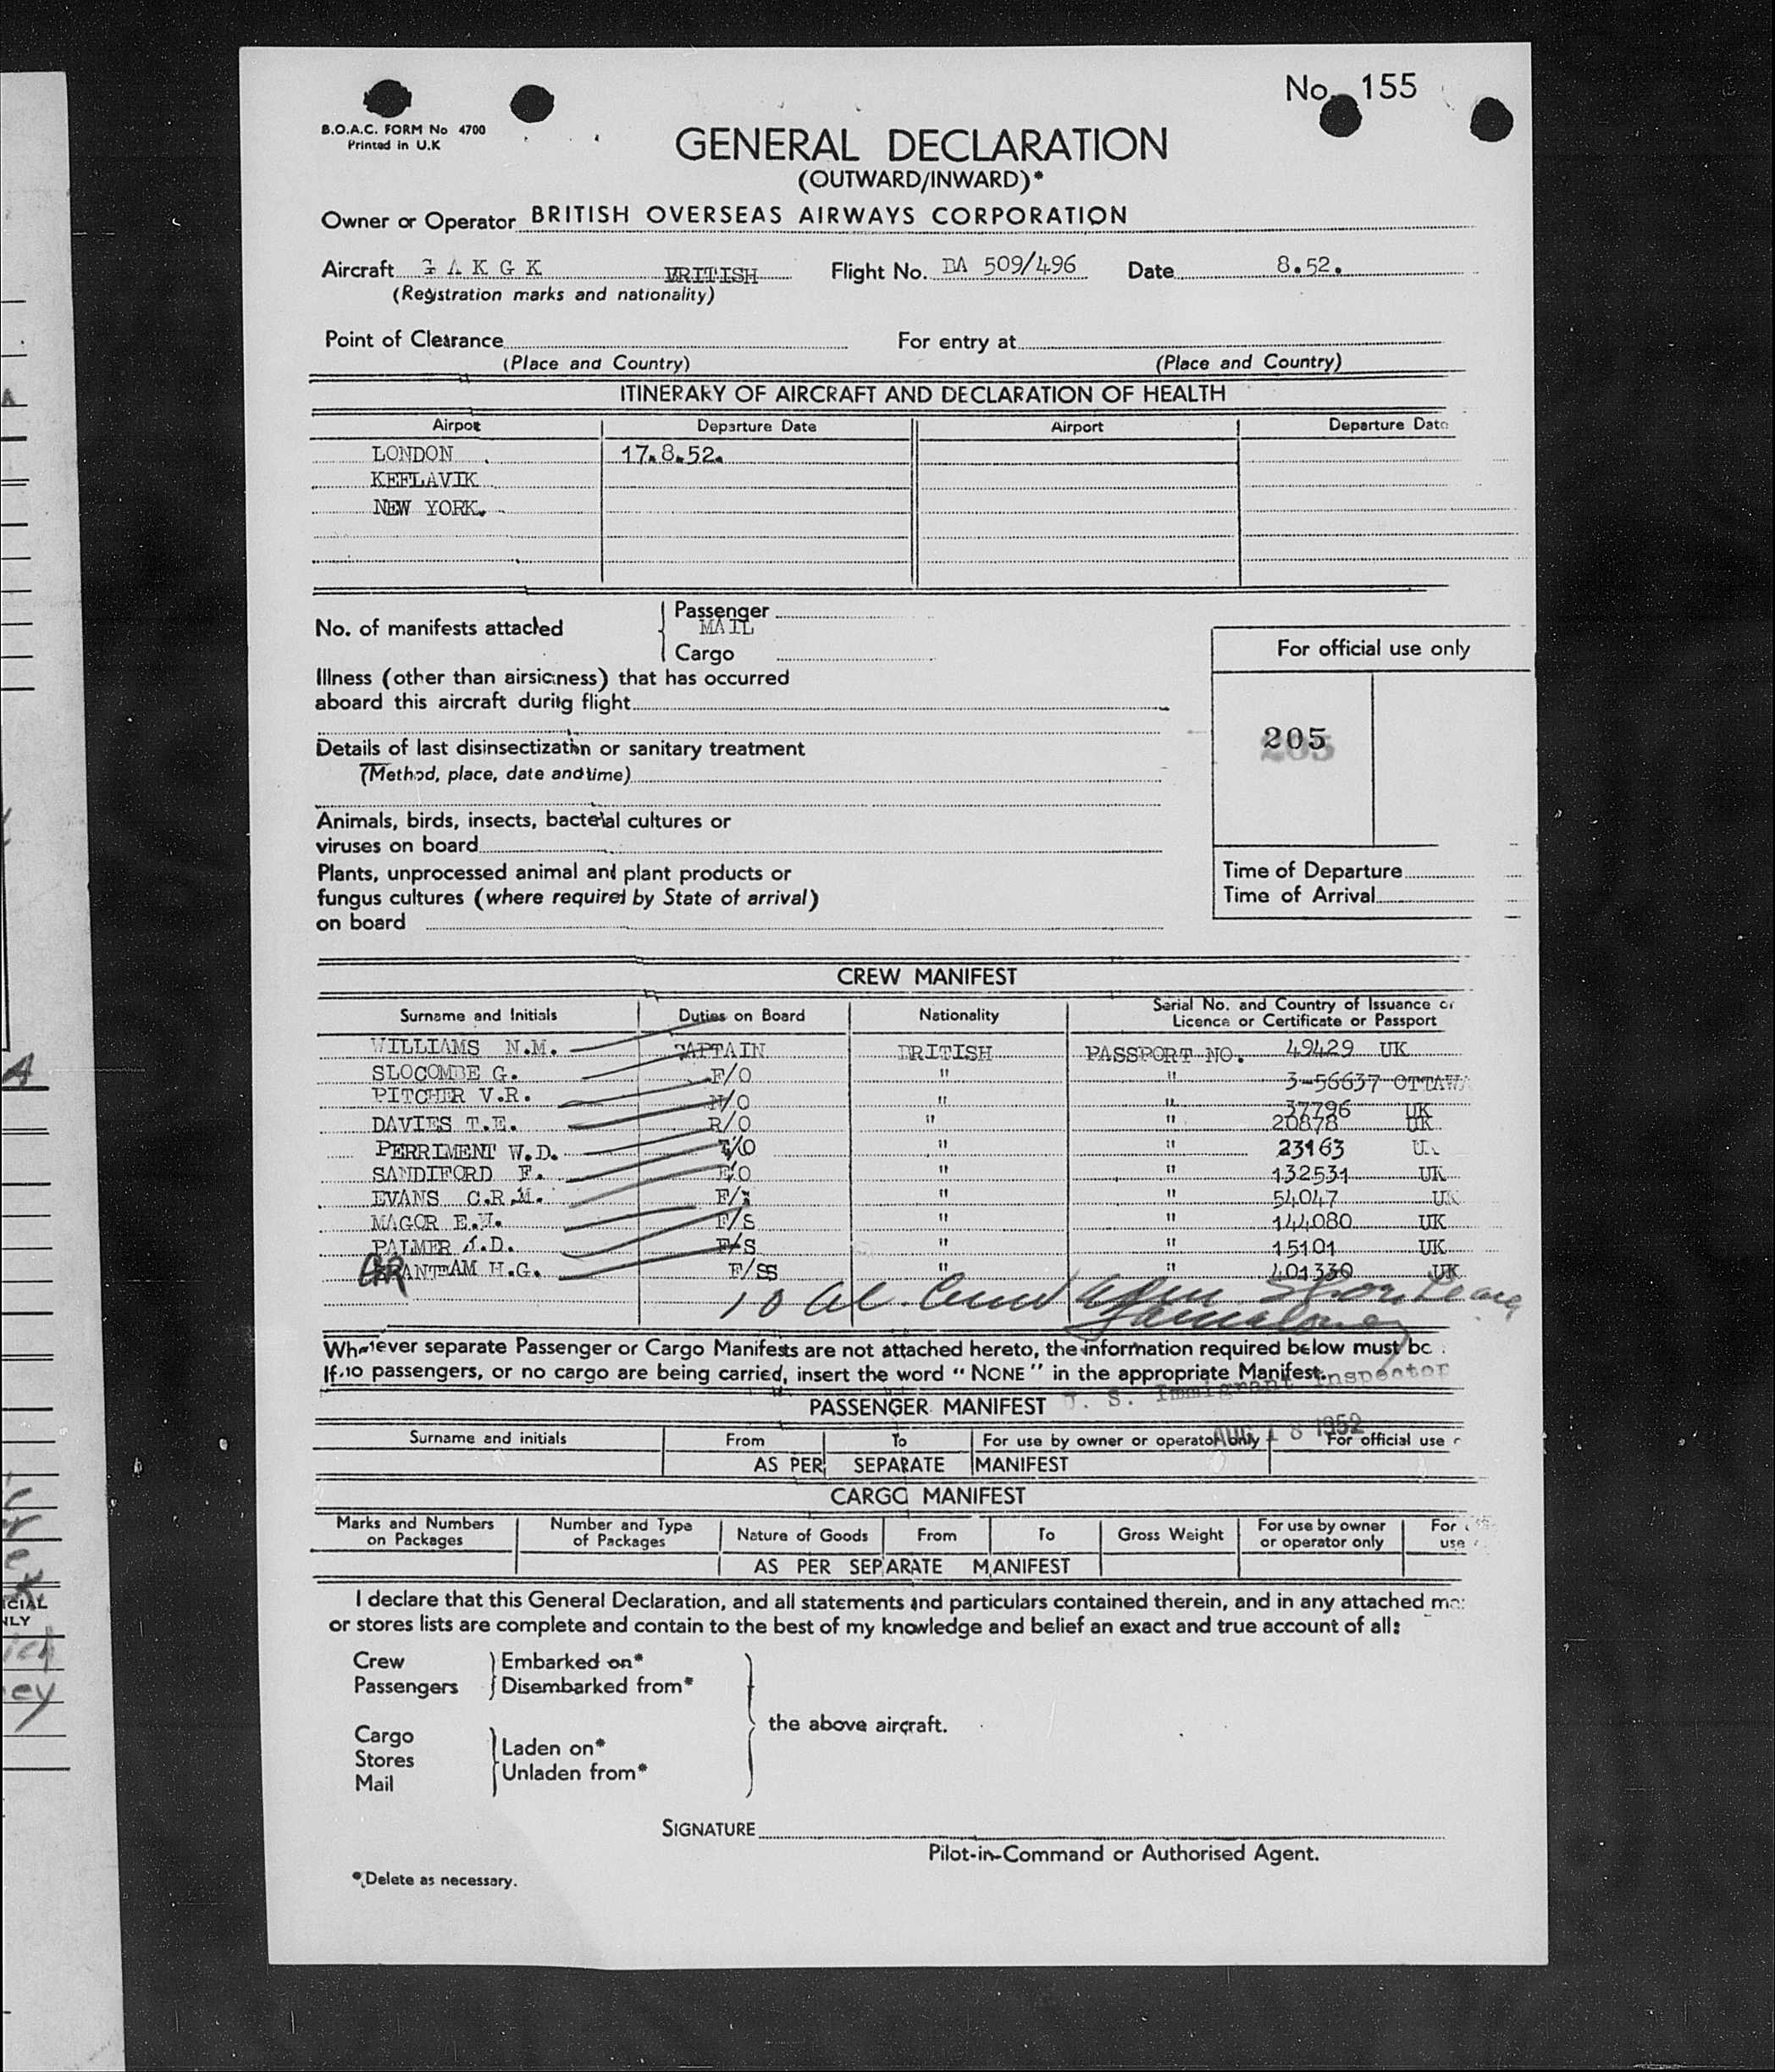 No. 155
B.O.A.C. FORM No 4700
Printed in U.K
GENERAL DECLARATION
(OUTWARD/INWARD)*
Owner or Operator BRITISH OVERSEAS AIRWAYS CORPORATION
Aircraft G A K G K BRITISH Flight No. BA 509/496 Date 8.52.
(Registration marks and nationality)
Point of Clearance For entry at
(Place and Country) (Place and Country)
ITINERARY OF AIRCRAFT AND DECLARATION OF HEALTH
Airport Departure Date Airport Departure Date
LONDON 17.8.52.
KEFLAVIK
NEW YORK.
No. of manifests attached
Passenger
MAIL
Cargo
For official use only
Illness (other than airsickness) that has occurred
aboard this aircraft during flight
205
Details of last disinsectization or sanitary treatment
(Method, place, date and time)
Animals, birds, insects, bacterial cultures or
viruses on board
Plants, unprocessed animal and plant products or
fungus cultures (where required by State of arrival)
on board
Time of Departure
Time of Arrival
CREW MANIFEST
Surname and Initials Duties on Board Nationality Serial No. and Country of Issuance or
Licence or Certificate or Passport
WILLIAMS N.M. CAPTAIN BRITISH PASSPORT NO. 49429 UK
SLOCOMBE G. F/O " " 3-56637 OTTAWA
PITCHER V.R. N/O " " 37796 UK
DAVIES T.E. R/O " " 20878 UK
PERRIMENT W.D. " " 23163 UK
SANDIFORD F. E/O " " 132531 UK
EVANS C.R.M. " " 54047 UK
MAGOR E. F/S " " 144080 UK
PALMER D. F/S " " 15101 UK
GRANTHAM H.G. F/SS " " 401330 UK
10 al. Crew Shore Leave
Whenever separate Passenger or Cargo Manifests are not attached hereto, the information required below must be
If no passengers, or no cargo are being carried, insert the word "NONE" in the appropriate Manifest.
U. S. Immigrant Inspector
PASSENGER MANIFEST
AUG 18 1952
Surname and initials From To For use by owner or operator only For official use
AS PER SEPARATE MANIFEST
CARGO MANIFEST
Marks and Numbers on Packages Number and Type of Packages Nature of Goods From To Gross Weight For use by owner or operator only For use
AS PER SEPARATE MANIFEST
I declare that this General Declaration, and all statements and particulars contained therein, and in any attached
or stores lists are complete and contain to the best of my knowledge and belief an exact and true account of all:
Crew Embarked on*
Passengers Disembarked from*
the above aircraft.
Cargo
Stores Laden on*
Mail Unladen from*
SIGNATURE
Pilot-in-Command or Authorised Agent.
*Delete as necessary.